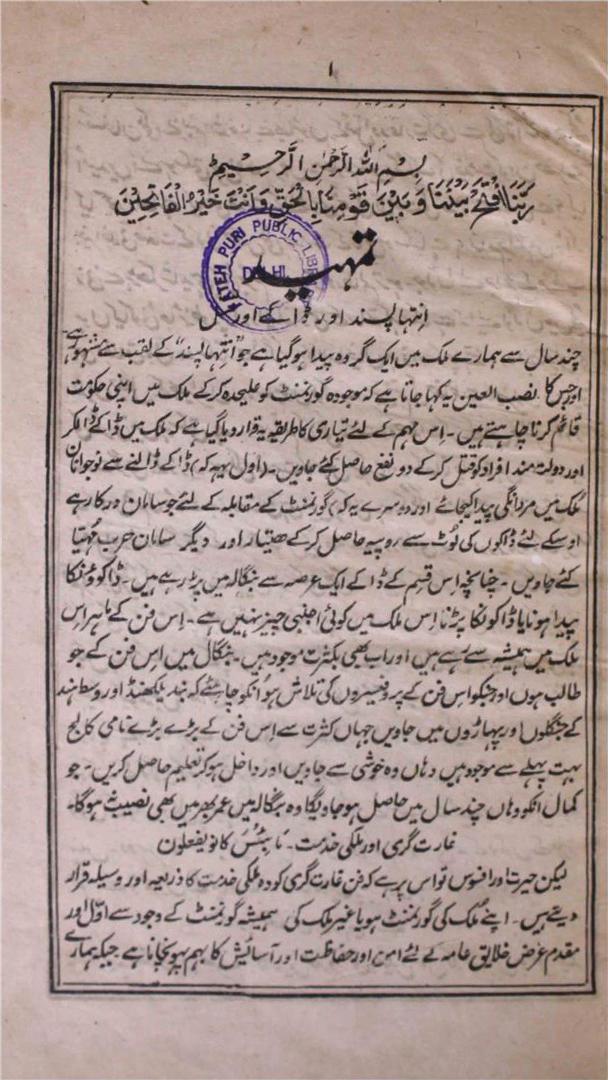 ۱
بِسْمِ اللّٰهِ الرَّحْمٰنِ الرَّحِیْمِ
رَبَّنَا افْتَحْ بَیْنَنَا وَ بَیْنَ قَوْمِنَا بِالْحَقِّ وَ اَنْتَ خَیْرُ الْفَاتِحِیْنَ
تمہید
FATEH PURI PUBLIC LIBRARY
DELHI
انتہا پسند اور ڈاکے اور
چند سال سے ہمارے ملک میں ایک گروہ پیدا ہو گیا ہے جو "انتہا پسند" کے لقب سے مشہور ہے
اور جس کا نصب العین یہ کہا جاتا ہے کہ موجودہ گورنمنٹ کو علیحدہ کر کے ملک میں اپنی حکومت
قائم کرنا چاہتے ہیں۔ اِس مہم کے لئے تیاری کا طریقہ یہ قرار دیا گیا ہے کہ ملک میں ڈاکے ڈالکر
اور دولت مند افراد کو قتل کر کے دو نفع حاصل کئے جاویں۔ (اول یہہ کہ) ڈاکے ڈالنے سے نوجوانان
ملک میں مردانگی پیدا کیجائے اور دوسرے یہ کہ) گورنمنٹ کے مقابلہ کے لئے جو سامان درکار ہے
اوسکے لئے ڈاکوں کی لُوٹ سے روپیہ حاصل کر کے ھتیار اور دیگر سامان حرب مُہیّا
کئے جاویں۔ چنانچہ اِس قسم کے ڈاکے ایک عرصہ سے بنگالہ میں پڑ رہے ہیں۔ ڈاکوؤنکا
پیدا ہونا یا ڈاکونکا پڑنا اِس ملک میں کوئی اجنبی چیز نہیں ہے۔ اِس فن کے ماہر اِس
ملک میں ہمیشہ سے رہے ہیں اور اب بھی بکثرت موجود ہیں۔ بنگال میں اِس فن کے جو
طالب ہوں اور جنکو اس فن کے پروفیسروں کی تلاش ہو اُنکو چاہئے کہ بندیلکھنڈ اور وسط ہند
کے جنگلوں اور پہاڑوں میں جاویں جہاں کثرت سے اِس فن کے بڑے بڑے نامی کالج
بہت پہلے سے موجود ہیں وہاں وہ خوشی سے جاویں اور داخل ہو کر تعلیم حاصل کریں۔ جو
کمال انکو وہاں چند سال میں حاصل ہو جاویگا وہ بنگالہ میں عمر بھر میں بھی نصیب نہ ہوگا۔
غارت گری اور ملکی خدمت۔
لیکن حیرت اور افسوس تو اس پر ہے کہ فن غارت گری کو وہ ملکی خدمت کا ذریعہ اور وسیلہ قرار
دیتے ہیں۔ اپنے ملک کی گورنمنٹ ہو یا غیر ملک کی ہمیشہ گورنمنٹ کے وجود سے اوّل اور
مقدم غرض خلایق عامہ کے لئے امن اور حفاظت اور آسائیش کا بہم پہونچانا ہے جبکہ ہمارے